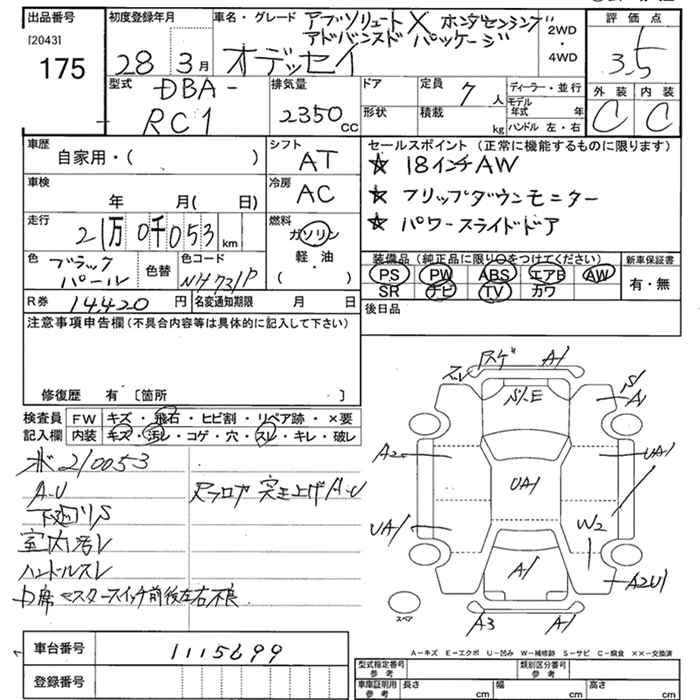 出品番号
[2043]
175
初度登録年月
28年 3月
車名・グレード アブソリュート X ホンダセンシング
アドバンスド パッケージ
オデッセイ
2WD
・
4WD
評価点
3.5
外装 内装
C C
型式
DBA-
RC1
排気量
2350 CC
ドア
形状
定員 7 人
積載 kg
ディーラー・並行
モデル年式 年
ハンドル 左・右
車歴
自家用・( )
シフト
AT
車検
年 月( 日)
冷房
AC
走行
21万0千053 km
燃料
ガソリン
軽・油
( )
色 ブラック
パール
色替
色コード
NH731P
R券 14,420 円
名変通知期限 月 日
セールスポイント(正常に機能するものに限ります)
★ 18インチAW
★ フリップダウンモニター
★ パワースライドドア
装備品(純正品に限り○をつけてください)
PS PW ABS エアB AW
SR ナビ TV カワ
新車保証書
有・無
後日品
注意事項申告欄(不具合内容等は具体的に記入して下さい)
修復歴 有 〔箇所 〕
検査員 FW キズ・飛石・ヒビ割・リペア跡・×要
記入欄 内装 キズ・汚レ・コゲ・穴・スレ・キレ・破レ
メ210053
A・U
下廻りS
室内汚レ
ハンドルスレ
D席 マスタースイッチ前後左右不良
突き上げA・U
スレ
A1
S
A1
S/E
A2
UA1
UA1
UA1
W2
A1
A2U1
A3
A1
スペア
A-キズ E-エクボ U-凹み W-補修跡 S-サビ C-腐食 ××-交換済
車台番号 1115699
登録番号
型式指定番号
参考
類別区分番号
参考
車庫証明用
参考
長さ cm
幅 cm
高さ cm